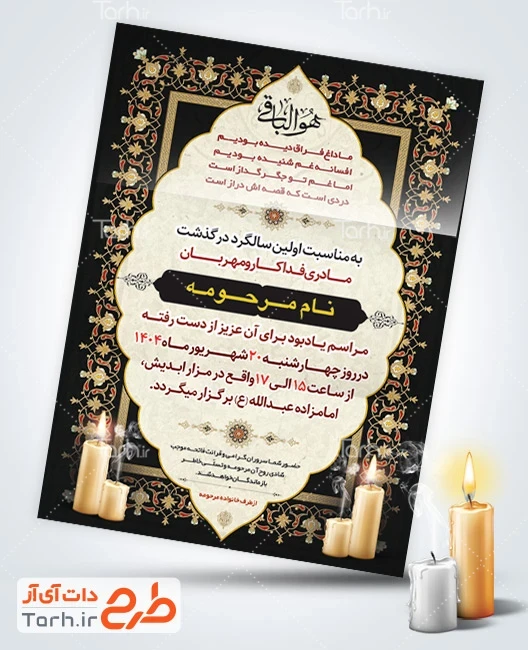 هوالباقی
ما داغ فراق دیده بودیم
افسانه غم شنیده بودیم
اما غم تو جگر گداز است
دردی است که قصه اش دراز است
به مناسبت اولین سالگرد درگذشت
مادری فداکار و مهربان
نام مرحومه
مراسم یادبود برای آن عزیز از دست رفته
در روز چهارشنبه ۲۰ شهریور ماه ۱۴۰۴
از ساعت ۱۵ الی ۱۷ واقع در مزار ابدیش،
امامزاده عبدالله (ع) برگزار میگردد.
حضور شما سروران گرامی و قرائت فاتحه موجب
شادی روح آن مرحومه و تسلی خاطر
بازماندگان خواهد شد.
از طرف خانواده مرحومه
طرح دات آی آر
Tarh.ir